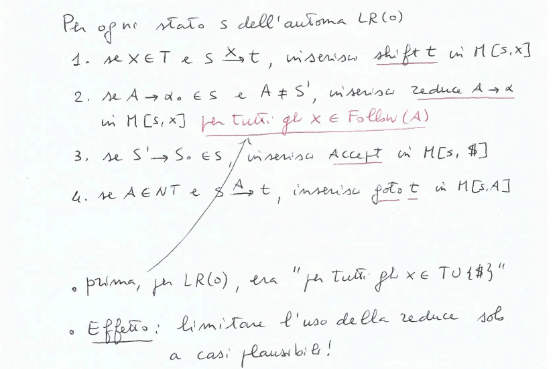 Per ogni stato s dell'automa LR(0)
1. se X ∈ T e s -X-> t, inserisci shift t in M[s,x]
2. se A → α. ∈ s e A ≠ S', inserisci reduce A → α
in M[s,x] per tutti gli x ∈ Follow(A)
3. se S' → S. ∈ s, inserisci Accept in M[s, $]
4. se A ∈ NT e s -A-> t, inserisci goto t in M[s,A]
• prima, per LR(0), era "per tutti gli x ∈ T ∪ {$}"
• Effetto: limitare l'uso della reduce solo
a casi plausibili!